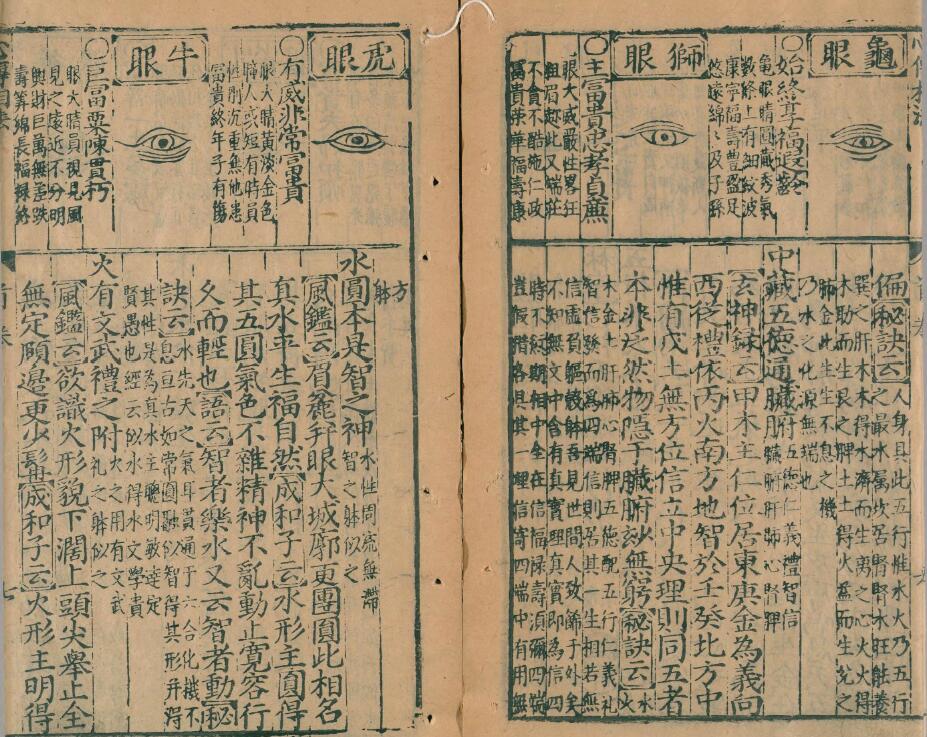 龜眼
○始終享福遐齡
龜眼睛圓藏秀氣
數條上有細紋波
康寧福壽豐盈足
悠遠綿綿及子孫
獅眼
○主富貴忠孝貞廉
眼大威嚴性畧狂
粗眉趂此又端莊
不貪不酷施仁政
富貴榮華福壽康
偏秘訣云人身具此五行惟水火乃五行
之最水屬坎居腎腎水旺能養
巽之肝木木得水濟而生离之心火火得
木助而生艮之脾土土得火盈而生兊之
肺金此生生不息之機
乃水之化源無端也
中藏五德通臟腑五德仁義禮智信
臟肝肺心腎脾
玄神録云甲木主仁位居東庚金為義向
西從禮依丙火南方地智於壬癸北方中
惟有戊土無方位信立中央理則同五者
本非是然物隱于臟腑妙無窮秘訣云水火
木金土肝肺心腎脾五德配五行仁義礼
智信發而為四端信則居其一生相若無
信虛負軀殼躰吾見世間人致餙于外矣
不知無文中含有真實理真實即為信四
時不忒期相中全在信福祿壽湏彌四端
豈假借各俱其一理信寄四端中有用無
虎眼
○有威非常富貴
眼大睛黃淡金色
瞳人或短有時員
性剛沉重無他患
富貴終年子有傷
牛眼
○巨富粟陳貫朽
眼大睛員視見風
見之遠近不分明
興財巨萬無差跌
壽筭綿長福禄終
方
躰
水圓本是智之神水性周流無滯
智之躰似之
風鑑云眉麄并眼大城廓更團圓此相名
真水平生福自然成和子云水形主圓得
其五圓氣色不雜精神不亂動止寛容行
久而輕也語云智者樂水又云智者動秘
訣云水先天之氣耳貫通于六合化機不
息亘古如常圓融似智得其形并得
其性是為真水主聰明敏達定
賢愚也經云似水得水文學貴
火有文武禮之附火之用有文武
礼之躰似之
風鑑云欲識火形貌下濶上頭尖舉止全
無定頤邊更少髯成和子云火形主明得